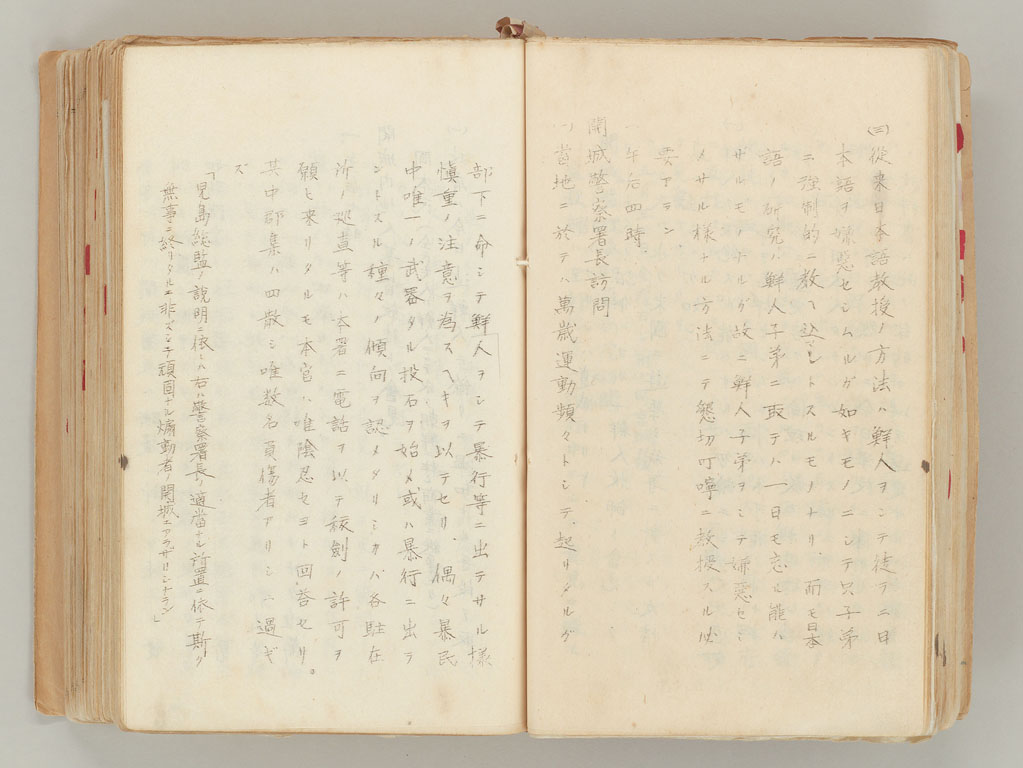 (三)従来日本語教授ノ方法ハ鮮人ヲシテ徒ヲニ日
本語ヲ嫌悪セシムルガ如キモノニシテ只子弟
ニ強制的ニ教ヘ込ントスルモノナリ 而モ日本
語ノ研究ハ鮮人子弟ニ取テハ一日モ忘ル能ハ
ザルモノナルガ故ニ鮮人子弟ヲシテ嫌悪セシ
メサル様ナル方法ニテ懇切叮嚀ニ教授スル必
要アラン
一、午后四時
開城警察署長訪問
一、当地ニ於テハ萬歳運動頻々トシテ起リタルガ
部下ニ命シテ鮮人ヲシテ暴行等ニ出テサル様
慎重ノ注意ヲ為スヘキヲ以テセリ、偶々暴民
中唯一ノ武器タル投石ヲ始メ或ハ暴行ニ出ラ
ントスル種々ノ傾向ヲ認メタリシカバ各駐在
所ノ巡査等ハ本署ニ電話ヲ以テ稼劍ノ許可ヲ
願ヒ来リタルモ本官ハ唯陰忍セヨト回答セリ。
其中群集ハ四散シ唯数名負傷者アリシニ過ギ
ズ
「児島総監ノ説明ニ依レハ右ハ警察署長ノ適当ナル処置ニ依テ斯ク
無事ニ終リタルニ非ズシテ頑固ナル煽動者ノ開城ニアラザリシナラン」